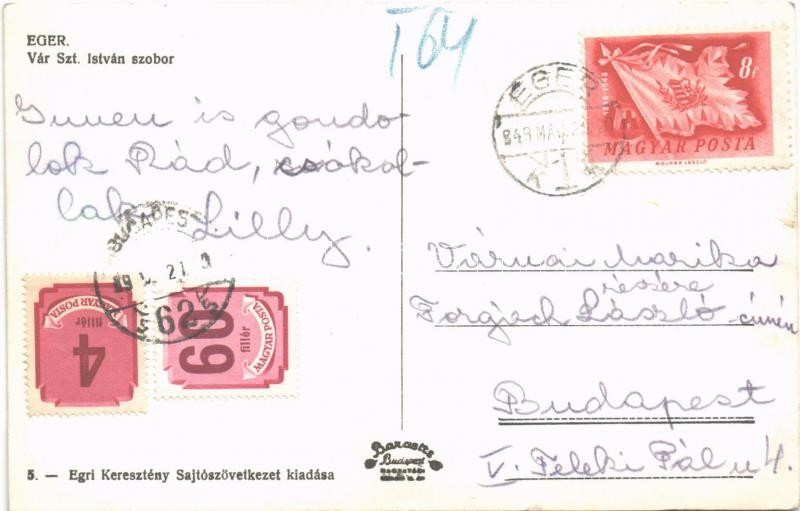 EGER.
Vár Szt. István szobor
T 64
Innen is gondo
lok Rád, csókol-
lak
Lilly.
EGER
1848-1948
8f
MAGYAR POSTA
MOLNÁR LÁSZLÓ
Várnai Marika
részére
Forgách László címén
Budapest
V. Teleki Pál u 4.
BUDAPEST
62
MAGYAR POSTA
fillér
4
MAGYAR POSTA
fillér
60
Barasits
Budapest
5. — Egri Keresztény Sajtószövetkezet kiadása